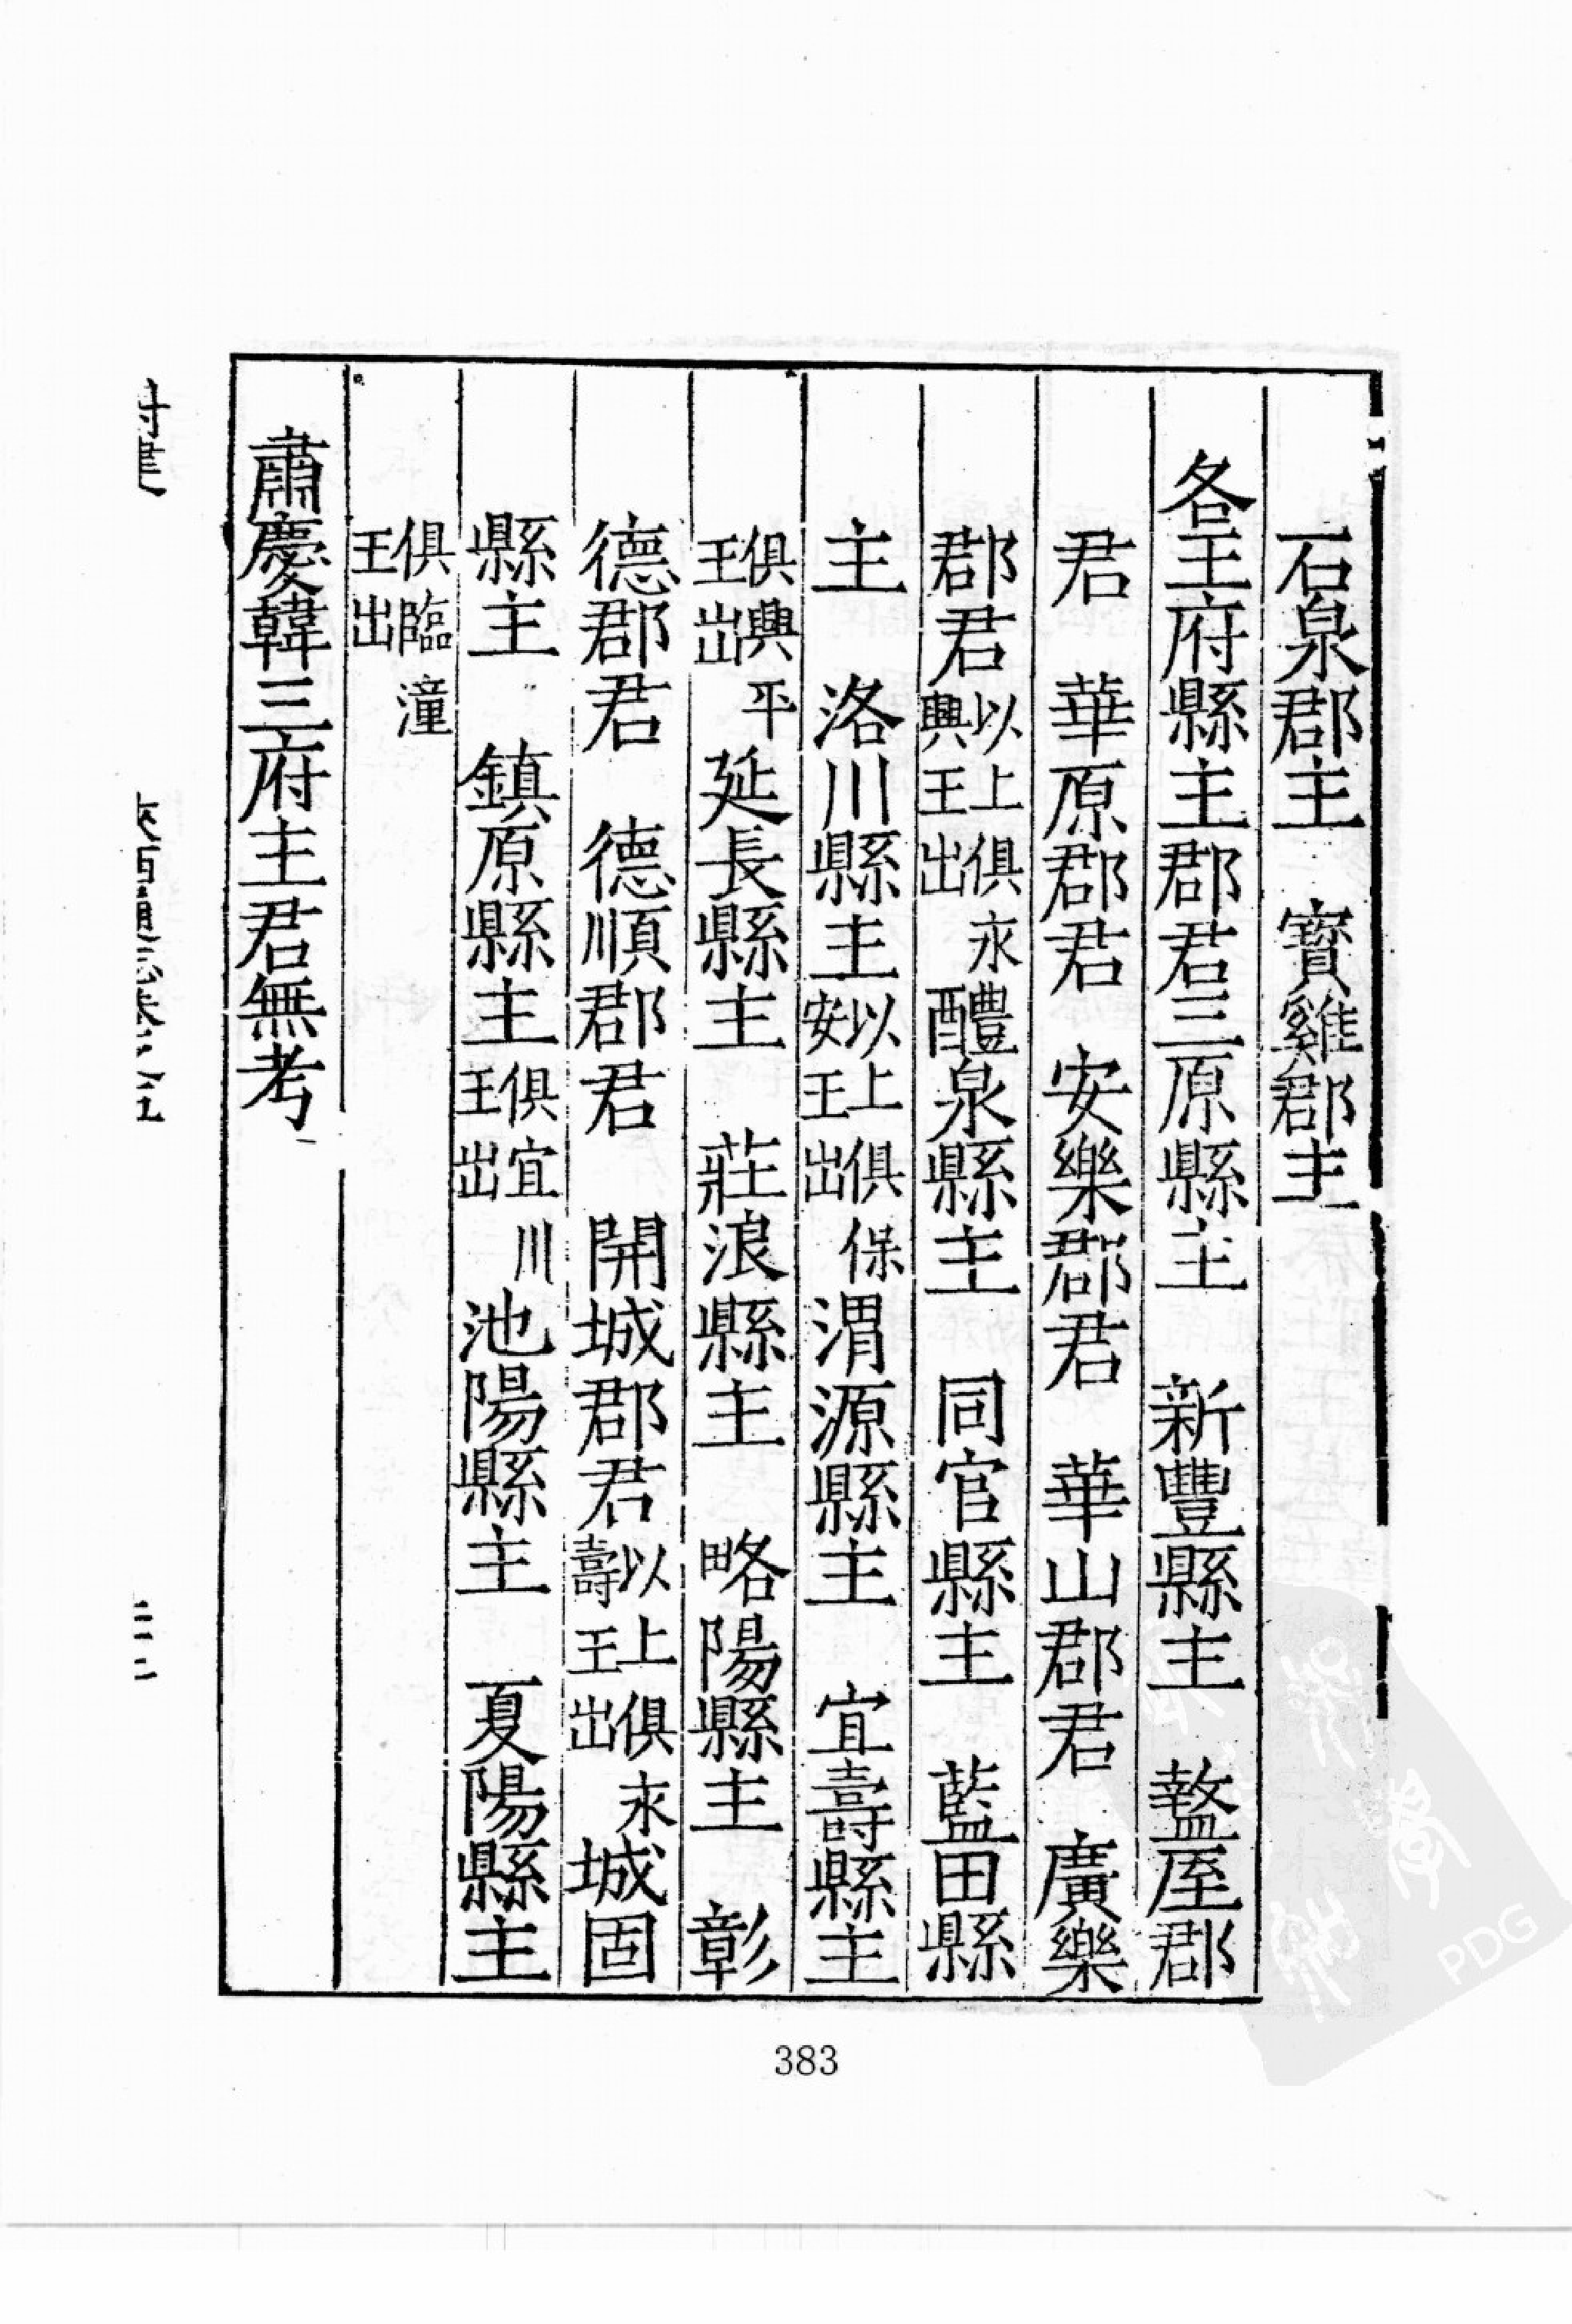 石泉郡主　寶雞郡主
各王府縣主郡君三原縣主　新豐縣主　盩厔郡
君　華原郡君　安樂郡君　華山郡君　廣樂
郡君以上俱永興王出醴泉縣主　同官縣主　藍田縣
主　洛川縣主以上俱保安王出渭源縣主　宜壽縣主
俱興平王出延長縣主　莊浪縣主　略陽縣主　彰
德郡君　德順郡君　開城郡君以上俱永壽王出城固
縣主　鎮原縣主俱宜川王出池陽縣主　夏陽縣主
俱臨潼王出
肅慶韓三府主君無考
383
PDG